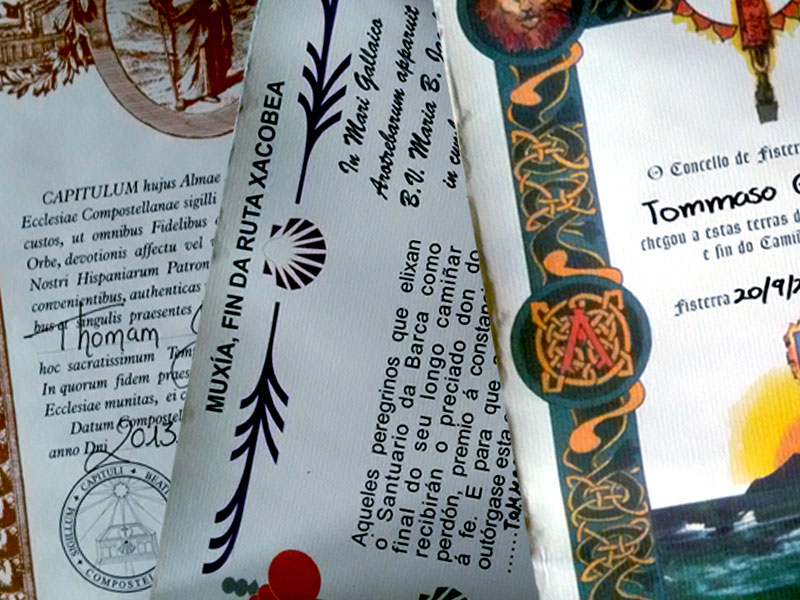 CAPITULUM hujus Almae
Ecclesiae Compostellanae sigilli
custos, ut omnibus Fidelibus
Orbe, devotionis affectu vel
Nostri Hispaniarum Patron
convenientibus, authenticas
bus et singulis praesentes
Thomam
hoc sacratissimum Tem
In quorum fidem praes
Ecclesiae munitas, ei c
Datum Compostel
anno Dni 2013.
SIGILLUM CAPITULI BEATI
COMPOSTE
MUXÍA, FIN DA RUTA XACOBEA
In Mari Gallaico
Arotrebarum apparuit
B.V. Maria B. Jac
in
Aqueles peregrinos que elixan
o Santuario da Barca como
final do seu longo camiñar
recibirán o preciado don do
perdón, premio á constanc
á fe. E para que
outórgase esta
TOMMAS
O Concello de Fister
Tommaso
chegou a estas terras d
e fin do Cami
Fisterra 20/9/2